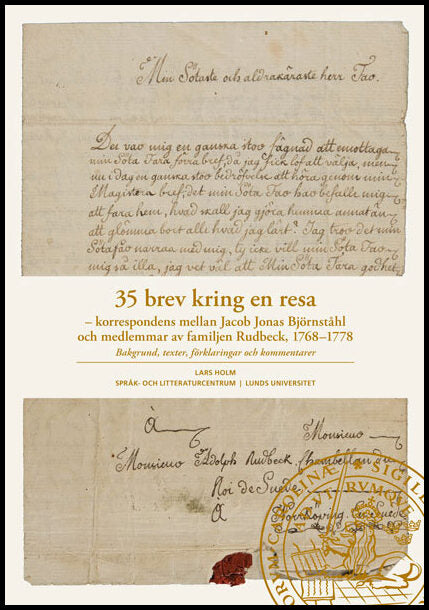 Min Sötaste och aldrakäraste herr Fao.
Det var mig en ganska stor fägnad att emottaga
min Söta Fars förra bref, då jag fick lof att välja, men
nu i dag en ganska stor bedröfvelse att höra genom min
Magisters bref, det min Söta Far har befalt mig
att fara hem, hvad skall jag gjöra hemma annat än
att glömma bort alle hvad jag lärt? Jag tror det min
Söta far narrar med mig, ty icke vill min Söta Far
mig så illa, jag vet väl att Min Söta Fars godhet
35 brev kring en resa
– korrespondens mellan Jacob Jonas Björnståhl
och medlemmar av familjen Rudbeck, 1768–1778
Bakgrund, texter, förklaringar och kommentarer
LARS HOLM
SPRÅK- OCH LITTERATURCENTRUM | LUNDS UNIVERSITET
À Monsieur
Monsieur Adolph Rudbeck, Chambellan du
Roi de Suede
à Norrköping. en Suede
CAROLINÆ SIGILL
UTRUMQUE